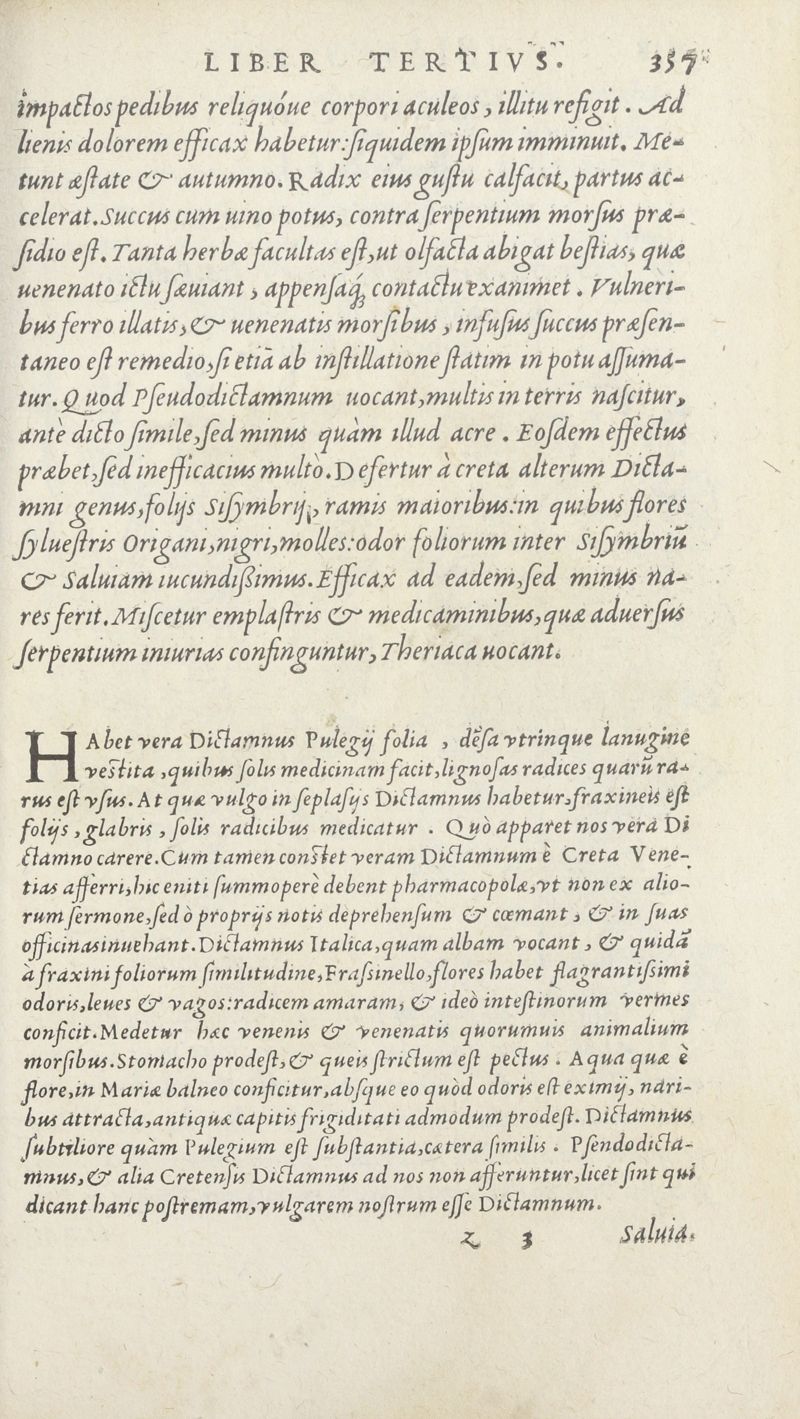 LIBER TERTIVS. 357
impactos pedibus reliquóue corpori aculeos, illitu refigit. Ad
lienis dolorem efficax habetur: siquidem ipsum imminuit. Me-
tunt æstate & autumno. Radix eius gustu calfacit, partus ac-
celerat. Succus cum uino potus, contra serpentium morsus præ-
sidio est. Tanta herbæ facultas est, ut olfacta abigat bestias, quæ
uenenato ictu sæuiant, appensaq; contactu exanimet. Vulneri-
bus ferro illatis, & uenenatis morsibus, infusus succus præsen-
taneo est remedio, si etiā ab instillatione statim in potu assuma-
tur. Quod Pseudodictamnum uocant, multis in terris nascitur,
ante dicto simile, sed minus quàm illud acre. Eosdem effectus
præbet, sed inefficacius multò. Defertur à creta alterum Dicta-
mni genus, folijs Sisymbrij, ramis maioribus: in quibus flores
syluestris Origani, nigri, molles: odor foliorum inter Sisymbriū
& Saluiam iucundissimus. Efficax ad eadem, sed minus na-
res ferit. Miscetur emplastris & medicaminibus, quæ aduersus
serpentium iniurias confinguntur, Theriaca uocant.
HAbet vera Dictamnus Pulegij folia, dēsa vtrinque lanugine
vestita, quibus solis medicinam facit, lignosas radices quarū ra-
rus est vsus. At quæ vulgo in seplasijs Dictamnus habetur, fraxineis est
folijs, glabris, solis radicibus medicatur. Quò apparet nos vera Di
ctamno carere. Cùm tamen constet veram Dictamnum è Creta Vene-
tias afferri, hic eniti summopere debent pharmacopolæ, vt non ex alio-
rum sermone, sed ò proprijs notis deprehensum & coemant, & in suas
officinas inuehant. Dictamnus Italica, quam albam vocant, & quidā
à fraxini foliorum similitudine, Frassinello, flores habet flagrantissimi
odoris, leues & vagos: radicem amaram, & ideò intestinorum vermes
conficit. Medetur hæc venenis & venenatis quorumuis animalium
morsibus. Stomacho prodest, & queis strictum est pectus. Aqua quæ è
flore, in Mariæ balneo conficitur, absque eo quòd odoris est eximij, nari-
bus attracta, antiquæ capitis frigiditati admodum prodest. Dictamnus
subtiliore quàm Pulegium est substantia, cætera similis. Psendodicta-
mnus, & alia Cretensis Dictamnus ad nos non afferuntur, licet sint qui
dicant hanc postremam, vulgarem nostrum esse Dictamnum.
z 3 Saluia.